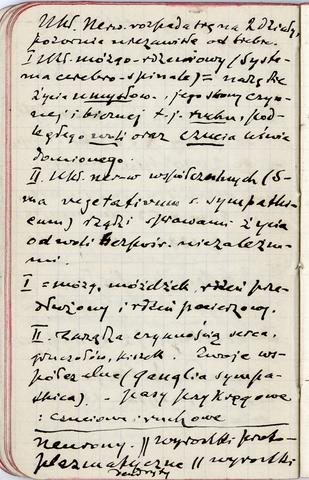 Ukł. Nerw. rozpada się na 2 działy,
pozornie niezawisłe od siebie.
I Ukł. mózgo-rdzeniowy (Syste-
ma cerebro-spinale) = narządzie
życia umysłow., jego strony czyn-
nej i biernej t.j. ruchu, pod-
ległego woli oraz czucia uświa
domionego.
II. Ukł. nerw współczulnych (S-
ma vegetativum s. sympathi-
cum) rządzi sprawami życia
od woli bezpośr. niezależne-
mi.
I = mózg, móżdżek, rdzeń prze-
dłużony i rdzeń pacierzowy.
II. Zarządza czynnością serca,
gruczołów, kiszek. Zwoje ws-
półczulne (Ganglia sympa-
thica). - pasy przykręgowe
: czuciowe i ruchowe
Neurony. || wyrostki proto-
plazmatyczne || wyrostki
dendryty